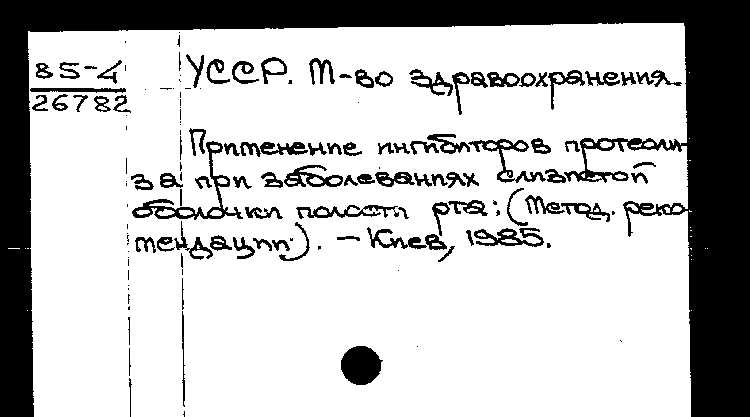 85-4
26782
УССР. М-во здравоохранения.
Применение ингибиторов протеоли-
за при заболеваниях слизистой
оболочки полости рта: (Метод. реко-
мендации). — Киев, 1985.